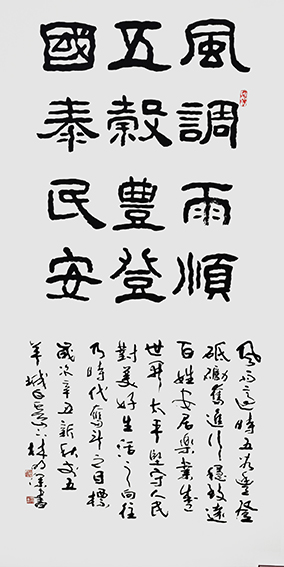 風調雨順
五穀豐登
國泰民安
風雨適時五谷豐登
砥礪奮進行穩致遠
百姓安居樂業生
世界太平堅守人民
對美好生活之向往
乃時代奮斗之目標
歲次辛丑新秋於五
羊城白雲